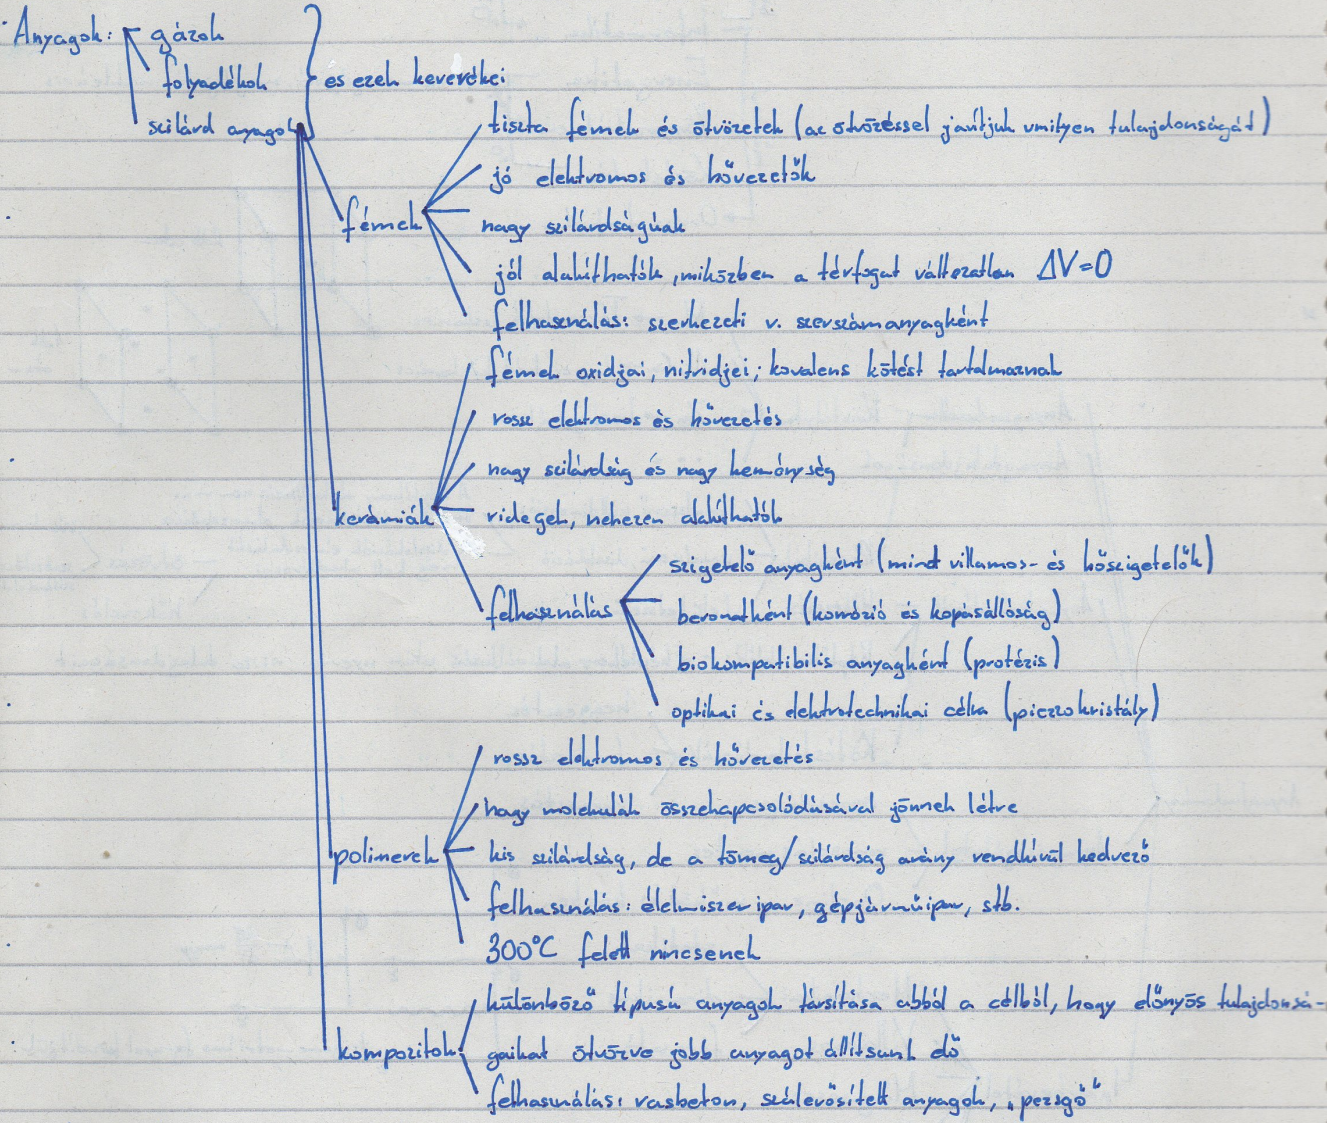 Anyagok: gázok
folyadékok
és ezek keverékei
szilárd anyagok
tiszta fémek és ötvözetek (az ötvözéssel javítjuk vmilyen tulajdonságát)
jó elektromos és hővezetők
fémek
nagy szilárdságúak
jól alakíthatók, miközben a térfogat változatlan ΔV=0
felhasználás: szerkezeti v. szerszámanyagként
fémek oxidjai, nitridjei; kovalens kötést tartalmaznak
rossz elektromos és hővezetés
nagy szilárdság és nagy keménység
kerámiák
ridegek, nehezen alakíthatók
szigetelő anyagként (mind villamos- és hőszigetelők)
felhasználás
bevonatként (korrózió és kopásállóság)
biokompatibilis anyagként (protézis)
optikai és elektrotechnikai célra (piezokristály)
rossz elektromos és hővezetés
nagy molekulák összekapcsolódásával jönnek létre
polimerek
kis szilárdság, de a tömeg/szilárdság arány rendkívül kedvező
felhasználás: élelmiszeripar, gépjárműipar, stb.
300°C felett nincsenek
különböző típusú anyagok társítása abból a célból, hogy előnyös tulajdonsá-
kompozitok
gaikat ötvözve jobb anyagot állítsunk elő
felhasználás: vasbeton, szálerősített anyagok, „pezsgő"